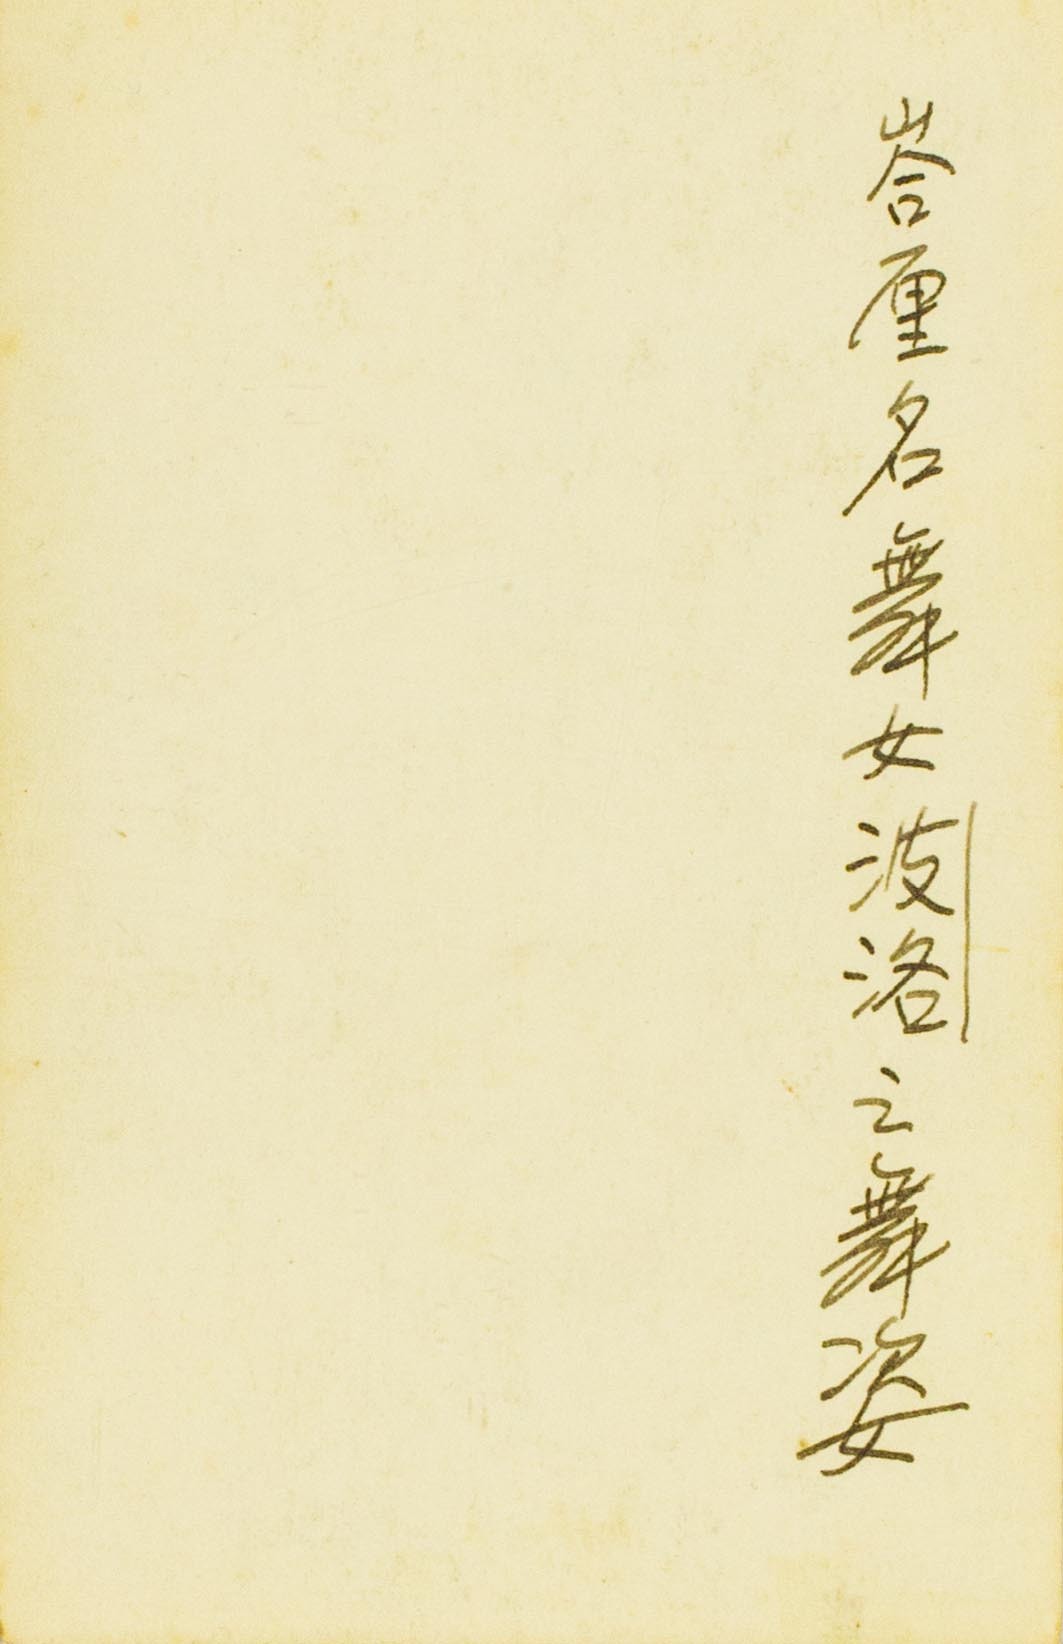 峇厘名舞女波洛之舞姿